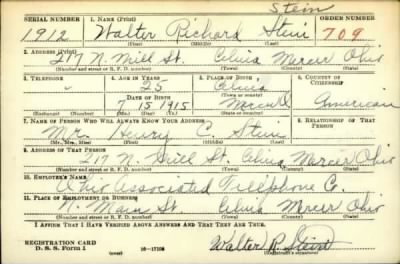 Stein
SERIAL NUMBER 1. NAME (Print) ORDER NUMBER
1912 Walter Richard Stein 709
(First) (Middle) (Last)
2. ADDRESS (Print)
217 N. Mill St. Celina Mercer Ohio
(Number and street or R. F. D. number) (Town) (County) (State)
3. TELEPHONE 4. AGE IN YEARS 5. PLACE OF BIRTH 6. COUNTRY OF CITIZENSHIP
25 Celina
(Town or county)
DATE OF BIRTH
7 15 1915 American
(Mo.) (Day) (Yr.) (State or country)
7. NAME OF PERSON WHO WILL ALWAYS KNOW YOUR ADDRESS 8. RELATIONSHIP OF THAT PERSON
Mr. Henry C. Stein
(Mr., Mrs., Miss) (First) (Middle) (Last)
9. ADDRESS OF THAT PERSON
217 N. Mill St. Celina Mercer Ohio
(Number and street or R. F. D. number) (Town) (County) (State)
10. EMPLOYER'S NAME
Ohio Associated Telephone Co.
11. PLACE OF EMPLOYMENT OR BUSINESS
N. Main St. Celina Mercer Ohio
(Number and street or R. F. D. number) (Town) (County) (State)
I AFFIRM THAT I HAVE VERIFIED ABOVE ANSWERS AND THAT THEY ARE TRUE.
REGISTRATION CARD
D. S. S. Form 1 16—17105 Walter R. Stein
(Registrant's signature)